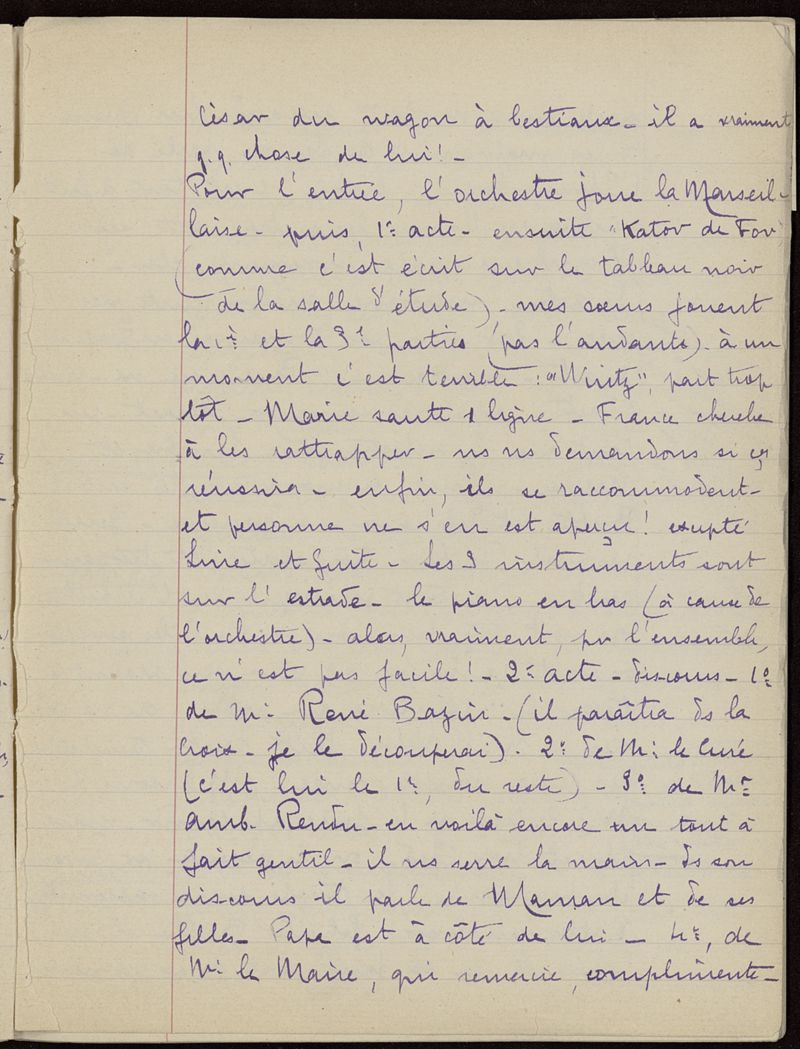 César du wagon à bestiaux - il a vraiment
q.q. chose de lui! -
Pour l'entrée, l'orchestre joue la Marseil-
laise - puis, 1er acte - ensuite "Kator de For"
(comme c'est écrit sur le tableau noir
de la salle d'étude) - mes sœurs jouent
la 1re et la 3e parties (pas l'andante) - à un
moment c'est terrible : "Wirtz", part trop
tôt - Marie saute 1 ligne - France cherche
à les rattrapper - ns ns demandons si ça
réussira - enfin, ils se raccommodent -
et personne ne s'en est aperçu! excepté
Line et Guite - Les 3 instruments sont
sur l'estrade - le piano en bas (à cause de
l'orchestre) - alors, vraiment, pr l'ensemble,
ce n'est pas facile! - 2e acte - discours - 1o
de Mr René Bazin - (il paraîtra ds la
Croix - je le découperai) - 2o de Mr le Curé
(c'est lui le 1er, du reste) - 3o de Mr
Amb. Rendu - en voilà encore un tout à
fait gentil - il ns serre la main - ds son
discours il parle de Maman et de ses
filles - Papa est à côté de lui - 4o, de
Mr le Maire, qui remercie, complimente -